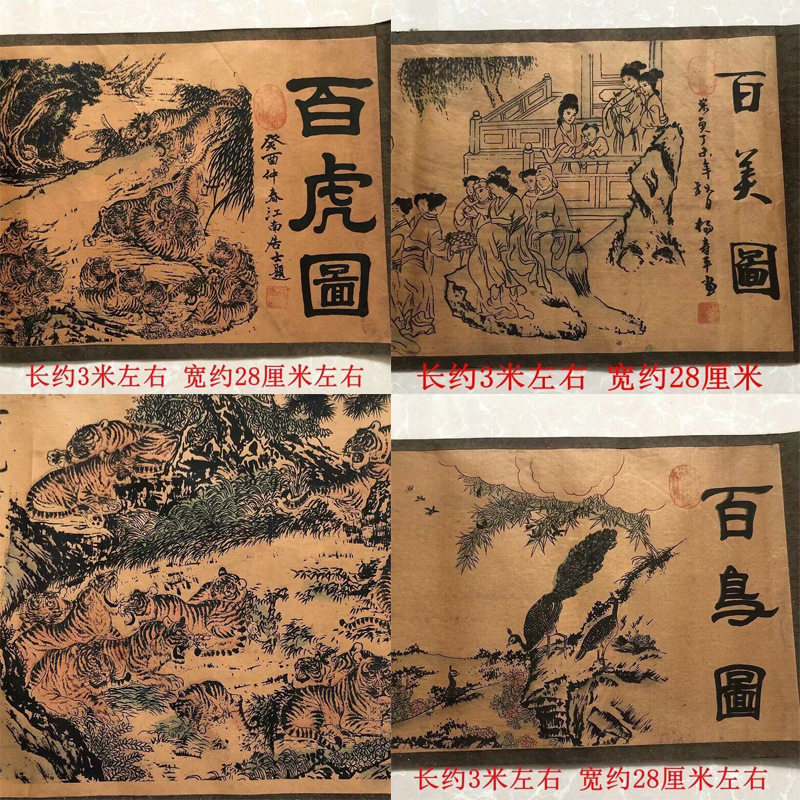 百虎圖
癸酉仲春江南居士題
长约3米左右 宽约28厘米左右
百美圖
长约3米左右 宽约28厘米
百鸟圖
长约3米左右 宽约28厘米左右